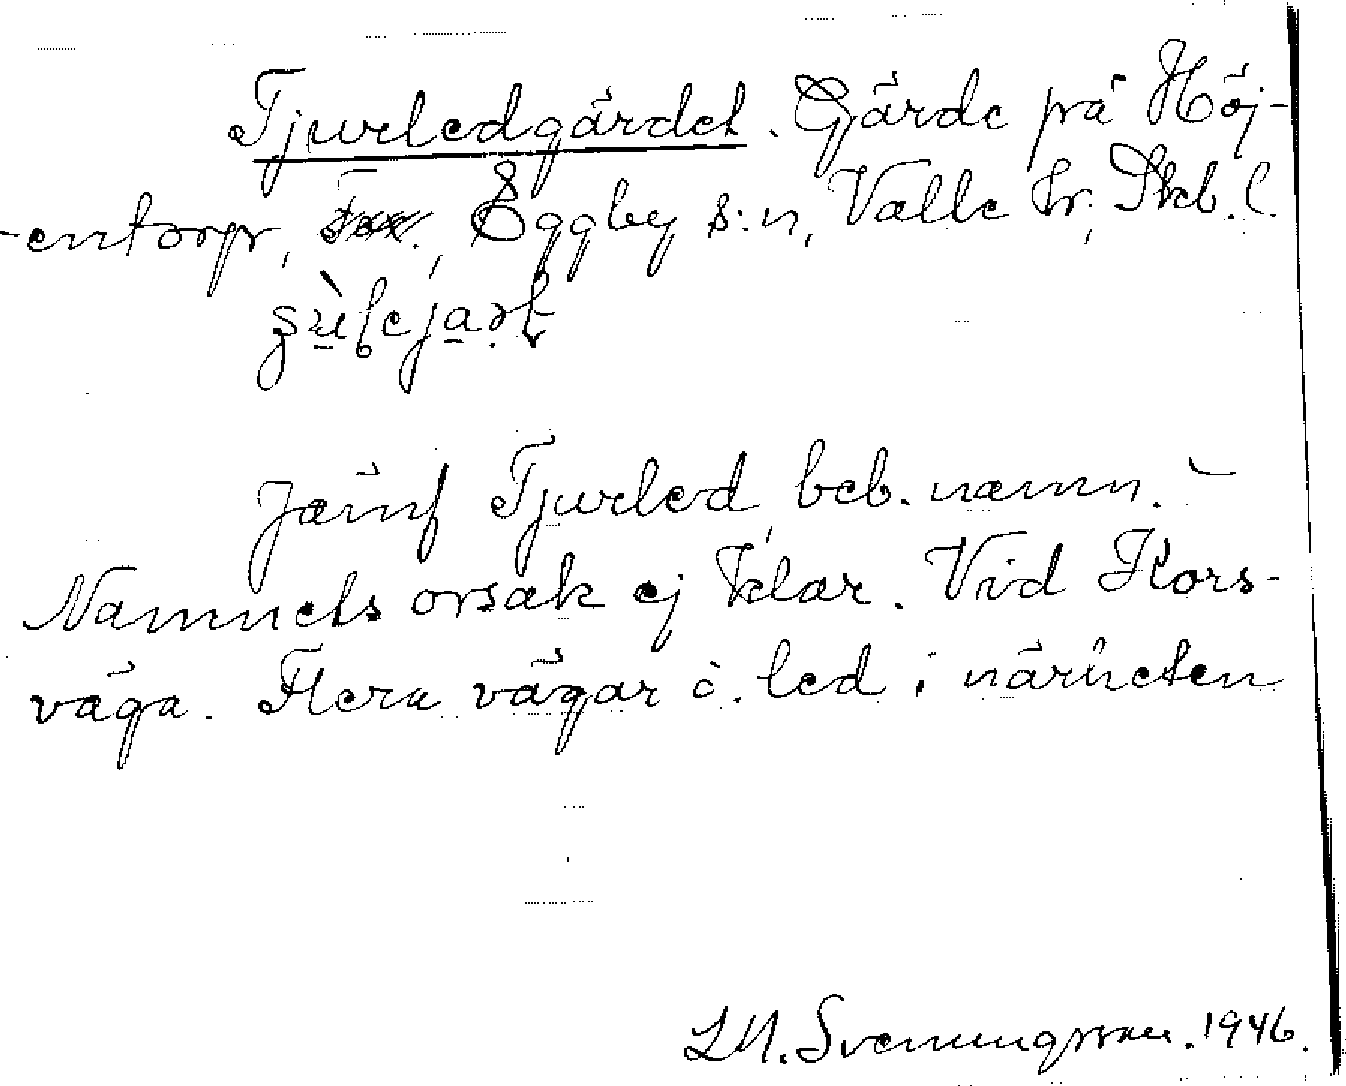 Tjurledgärdet. Gärde på Höj-
entorp, Eggby s:n, Valle hr, Skb. l.
Jämf Tjurled, beb. namn. -
Namnets orsak ej klar. Vid Kors-
väga. Flera vägar o. led i närheten
Svenungsson. 1946.